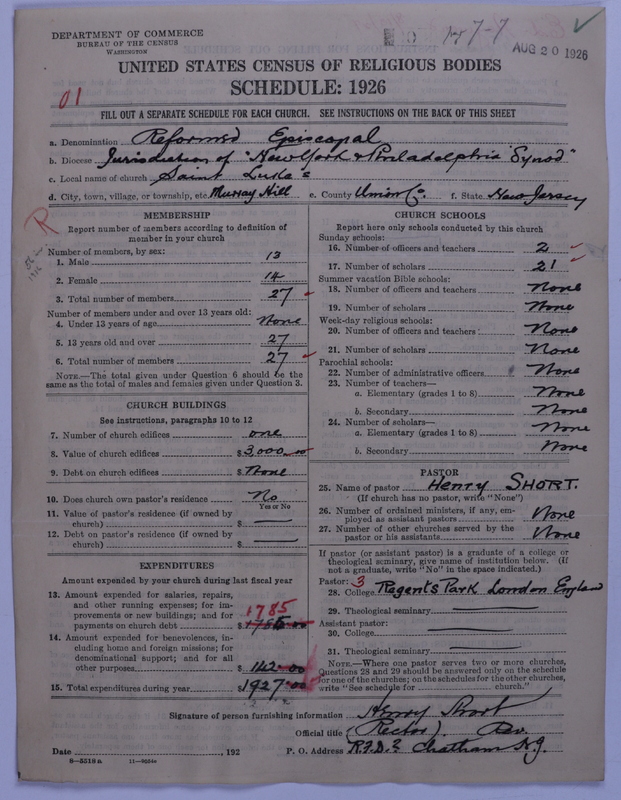 DEPARTMENT OF COMMERCE
BUREAU OF THE CENSUS
WASHINGTON
7-7
AUG 20 1926
UNITED STATES CENSUS OF RELIGIOUS BODIES
SCHEDULE: 1926
01
FILL OUT A SEPARATE SCHEDULE FOR EACH CHURCH. SEE INSTRUCTIONS ON THE BACK OF THIS SHEET
a. Denomination Reformed Episcopal
b. Diocese Jurisdiction of "New York & Philadelphia Synod"
c. Local name of church Saint Luke's
d. City, town, village, or township, etc. Murray Hill e. County Union Co. f. State New Jersey
R
MEMBERSHIP
Report number of members according to definition of member in your church
Number of members, by sex:
1. Male 13
2. Female 14
3. Total number of members 27
Number of members under and over 13 years old:
4. Under 13 years of age None
5. 13 years old and over 27
6. Total number of members 27
NOTE.—The total given under Question 6 should be the same as the total of males and females given under Question 3.
CHURCH BUILDINGS
See instructions, paragraphs 10 to 12
7. Number of church edifices one
8. Value of church edifices $3,000.00
9. Debt on church edifices $None
10. Does church own pastor's residence No
Yes or No
11. Value of pastor's residence (if owned by church) $ —
12. Debt on pastor's residence (if owned by church) $ —
EXPENDITURES
Amount expended by your church during last fiscal year
13. Amount expended for salaries, repairs, and other running expenses; for improvements or new buildings; and for payments on church debt 1785 $
14. Amount expended for benevolences, including home and foreign missions; for denominational support; and for all other purposes $142.00
15. Total expenditures during year $1927.00
CHURCH SCHOOLS
Report here only schools conducted by this church
Sunday schools:
16. Number of officers and teachers 2
17. Number of scholars 21
Summer vacation Bible schools:
18. Number of officers and teachers None
19. Number of scholars None
Week-day religious schools:
20. Number of officers and teachers None
21. Number of scholars None
Parochial schools:
22. Number of administrative officers None
23. Number of teachers—
a. Elementary (grades 1 to 8) None
b. Secondary None
24. Number of scholars—
a. Elementary (grades 1 to 8) None
b. Secondary None
PASTOR
25. Name of pastor HENRY SHORT.
(If church has no pastor, write "None")
26. Number of ordained ministers, if any, employed as assistant pastors None
27. Number of other churches served by the pastor or his assistants None
If pastor (or assistant pastor) is a graduate of a college or theological seminary, give name of institution below. (If not a graduate, write "No" in the space indicated.)
Pastor: 3
28. College Regent's Park London England
29. Theological seminary —
Assistant pastor:
30. College —
31. Theological seminary —
NOTE.—Where one pastor serves two or more churches, Questions 28 and 29 should be answered only on the schedule for one of the churches; on the schedules for the other churches, write "See schedule for church."
Signature of person furnishing information Henry Short
Official title (Rector) Rev.
Date , 192 P. O. Address R.F.D. 2 Chatham N.J.
8—5518 a 11—9054a